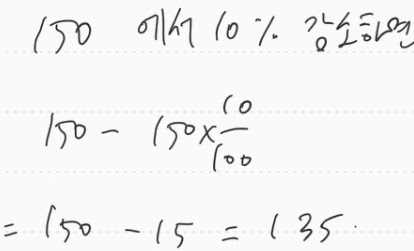 150 에서 10% 감소하면
150 - 150×10/100
= 150 - 15 = 135.